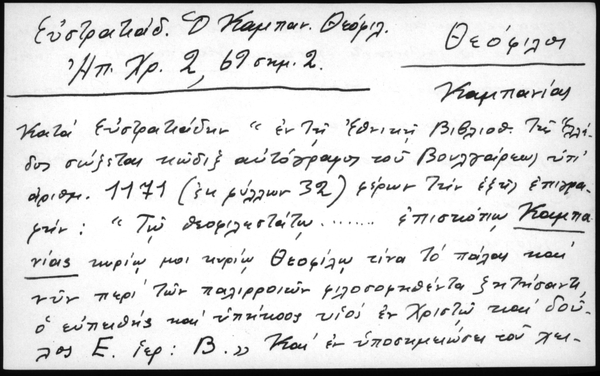 Εὐστρατιάδ. Ὁ Καμπαν. Θεόφιλ.
Ἠπ. Χρ. 2, 69 σημ. 2.
Θεόφιλος
Καμπανίας
Κατά Εὐστρατιάδην " ἐν τῇ Ἐθνικῇ Βιβλιοθ. τῆς Ἑλλά-
δος σώζεται κώδιξ αὐτόγραφος τοῦ Βουλγάρεως ὑπ'
ἀριθμ. 1171 (ἐκ φύλλων 32) φέρων τήν ἑξῆς ἐπιγρα-
φήν : " Τῷ θεοφιλεστάτῳ ....... ἐπισκόπῳ Καμπα
νίας κυρίῳ μοι κυρίῳ Θεοφίλῳ τίνα τό πάλαι καί
νῦν περί τῶν παλιρροιῶν φιλοσοφηθέντα ζητήσαντι
ὁ εὐπειθής καί ὑπήκοος υἱός ἐν Χριστῷ καί δοῦ-
λος Ε. ἱερ : Β. " Καί ἐν ὑποσημειώσει τοῦ χει-